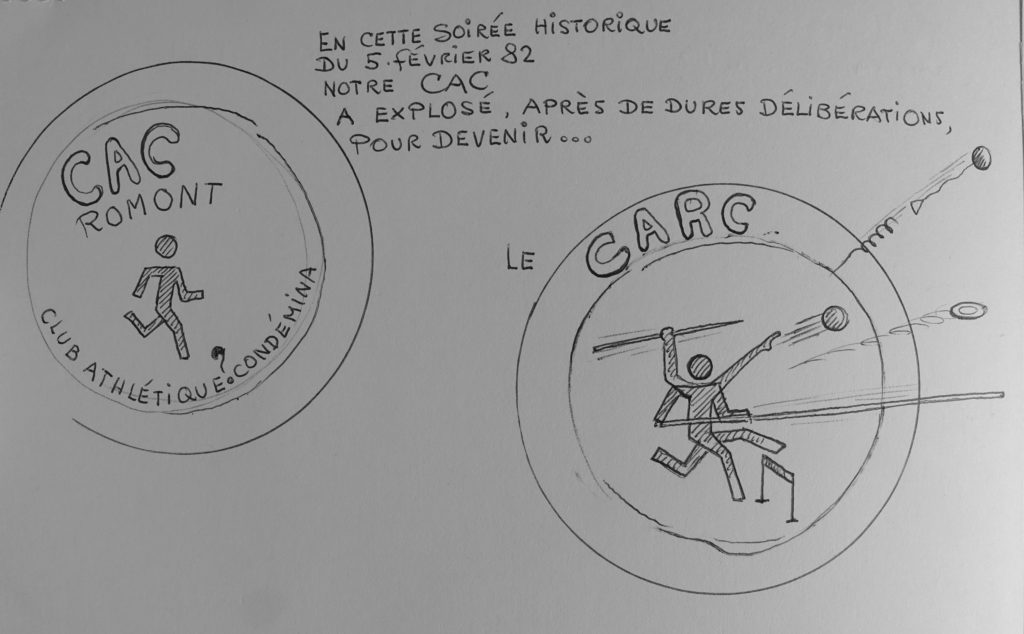 EN CETTE SOIRÉE HISTORIQUE
DU 5.FÉVRIER 82
NOTRE CAC
A EXPLOSÉ, APRÈS DE DURES DÉLIBÉRATIONS,
POUR DEVENIR...
CAC
ROMONT
CLUB ATHLÉTIQUE?CONDÉMINA
LE
CARC